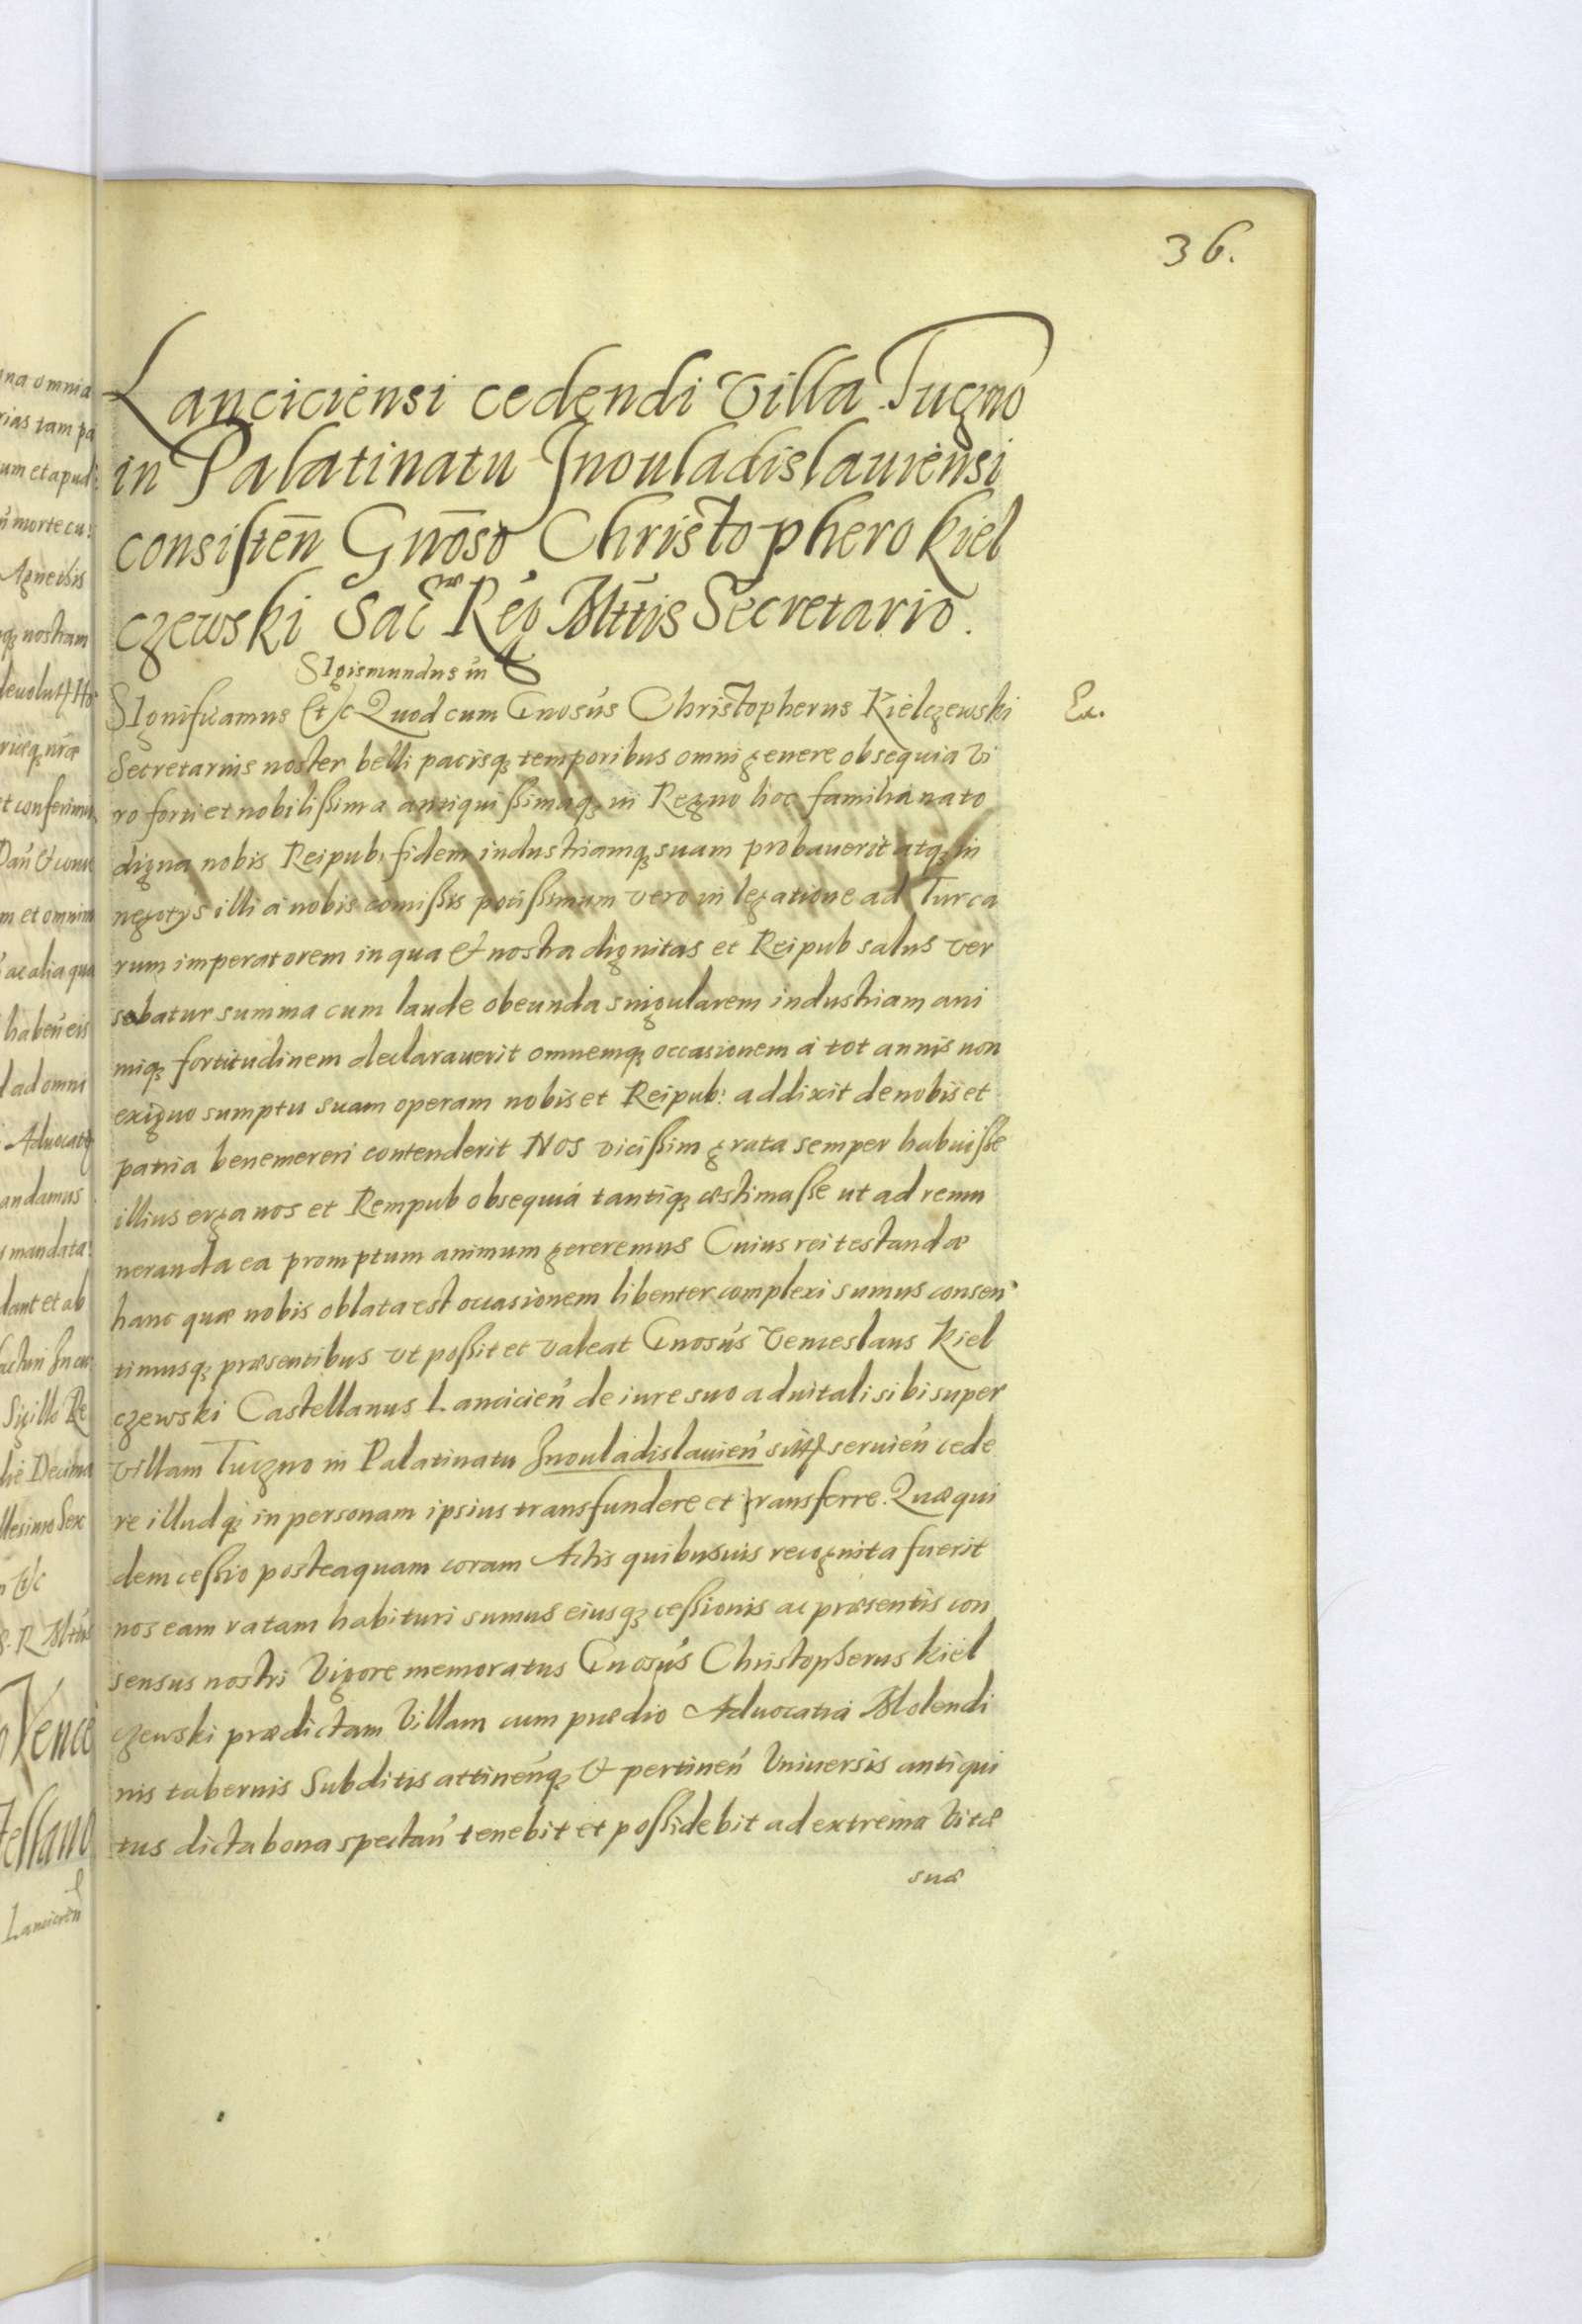 36.
Lanciciensi cedendi Villa Tuczno
in Palatinatu Jnouladislauiensi
consisten̄ Gn̄oso Christophero Kiel
czewski Sac͞r Reg Mttis Secretario.
SIgismundus in
SIgnificamus Et/c Quod cum Gnosus Christopherus Kielczewski
Ex.
Secretarius noster belli pacisq3 temporibus omni genere obsequia Vi
ro forti et nobilissima antiquissimaq3 in Regno hoc familia nato
digna nobis Reipub: fidem industriamq3 suam probauerit atq3 in
negotys illi à nobis comissis potissimum vero in legatione ad Turca
rum imperatorem in qua et nostra dignitas et Reipub salus ver
sabatur summa cum laude obeunda singularem industriam ani
miq3 fortitudinem declarauerit omnemq3 occasionem à tot annis non
exiguo sumptu suam operam nobis et Reipub: addixit de nobis et
patria benemereri contenderit Nos vicissim grata semper habuisse
illius erga nos et Rempub obsequia tantiq3 æstimasse ut ad remu
neranda ea promptum animum gereremus Cuius rei testandæ
hanc quæ nobis oblata est occasionem libenter complexi sumus consen
timusq3 præsentibus vt possit et valeat Gnosus Venceslaus Kiel
czewski Castellanus Lancicien̄ de iure suo aduitali sibi super
villam Tuczno in Palatinatu Jnouladislauien̄ sitā seruien̄ cede
re illudq3 in personam ipsius transfundere et transferre. Quæ qui
dem cessio posteaquam coram Actis quibusuis recognita fuerit
nos eam ratam habituri sumus eiusq3 cessionis ac præsentis con
sensus nostri Vigore memoratus Gnosus Christopherus Kiel
czewski prædictam Villam cum prædio Aduocatia Molendi
nis tabernis Subditis attinen̄q3 et pertinen̄ Vniuersis antiqui
tus dicta bona spectan̄ tenebit et possidebit ad extrema Vitæ
suæ